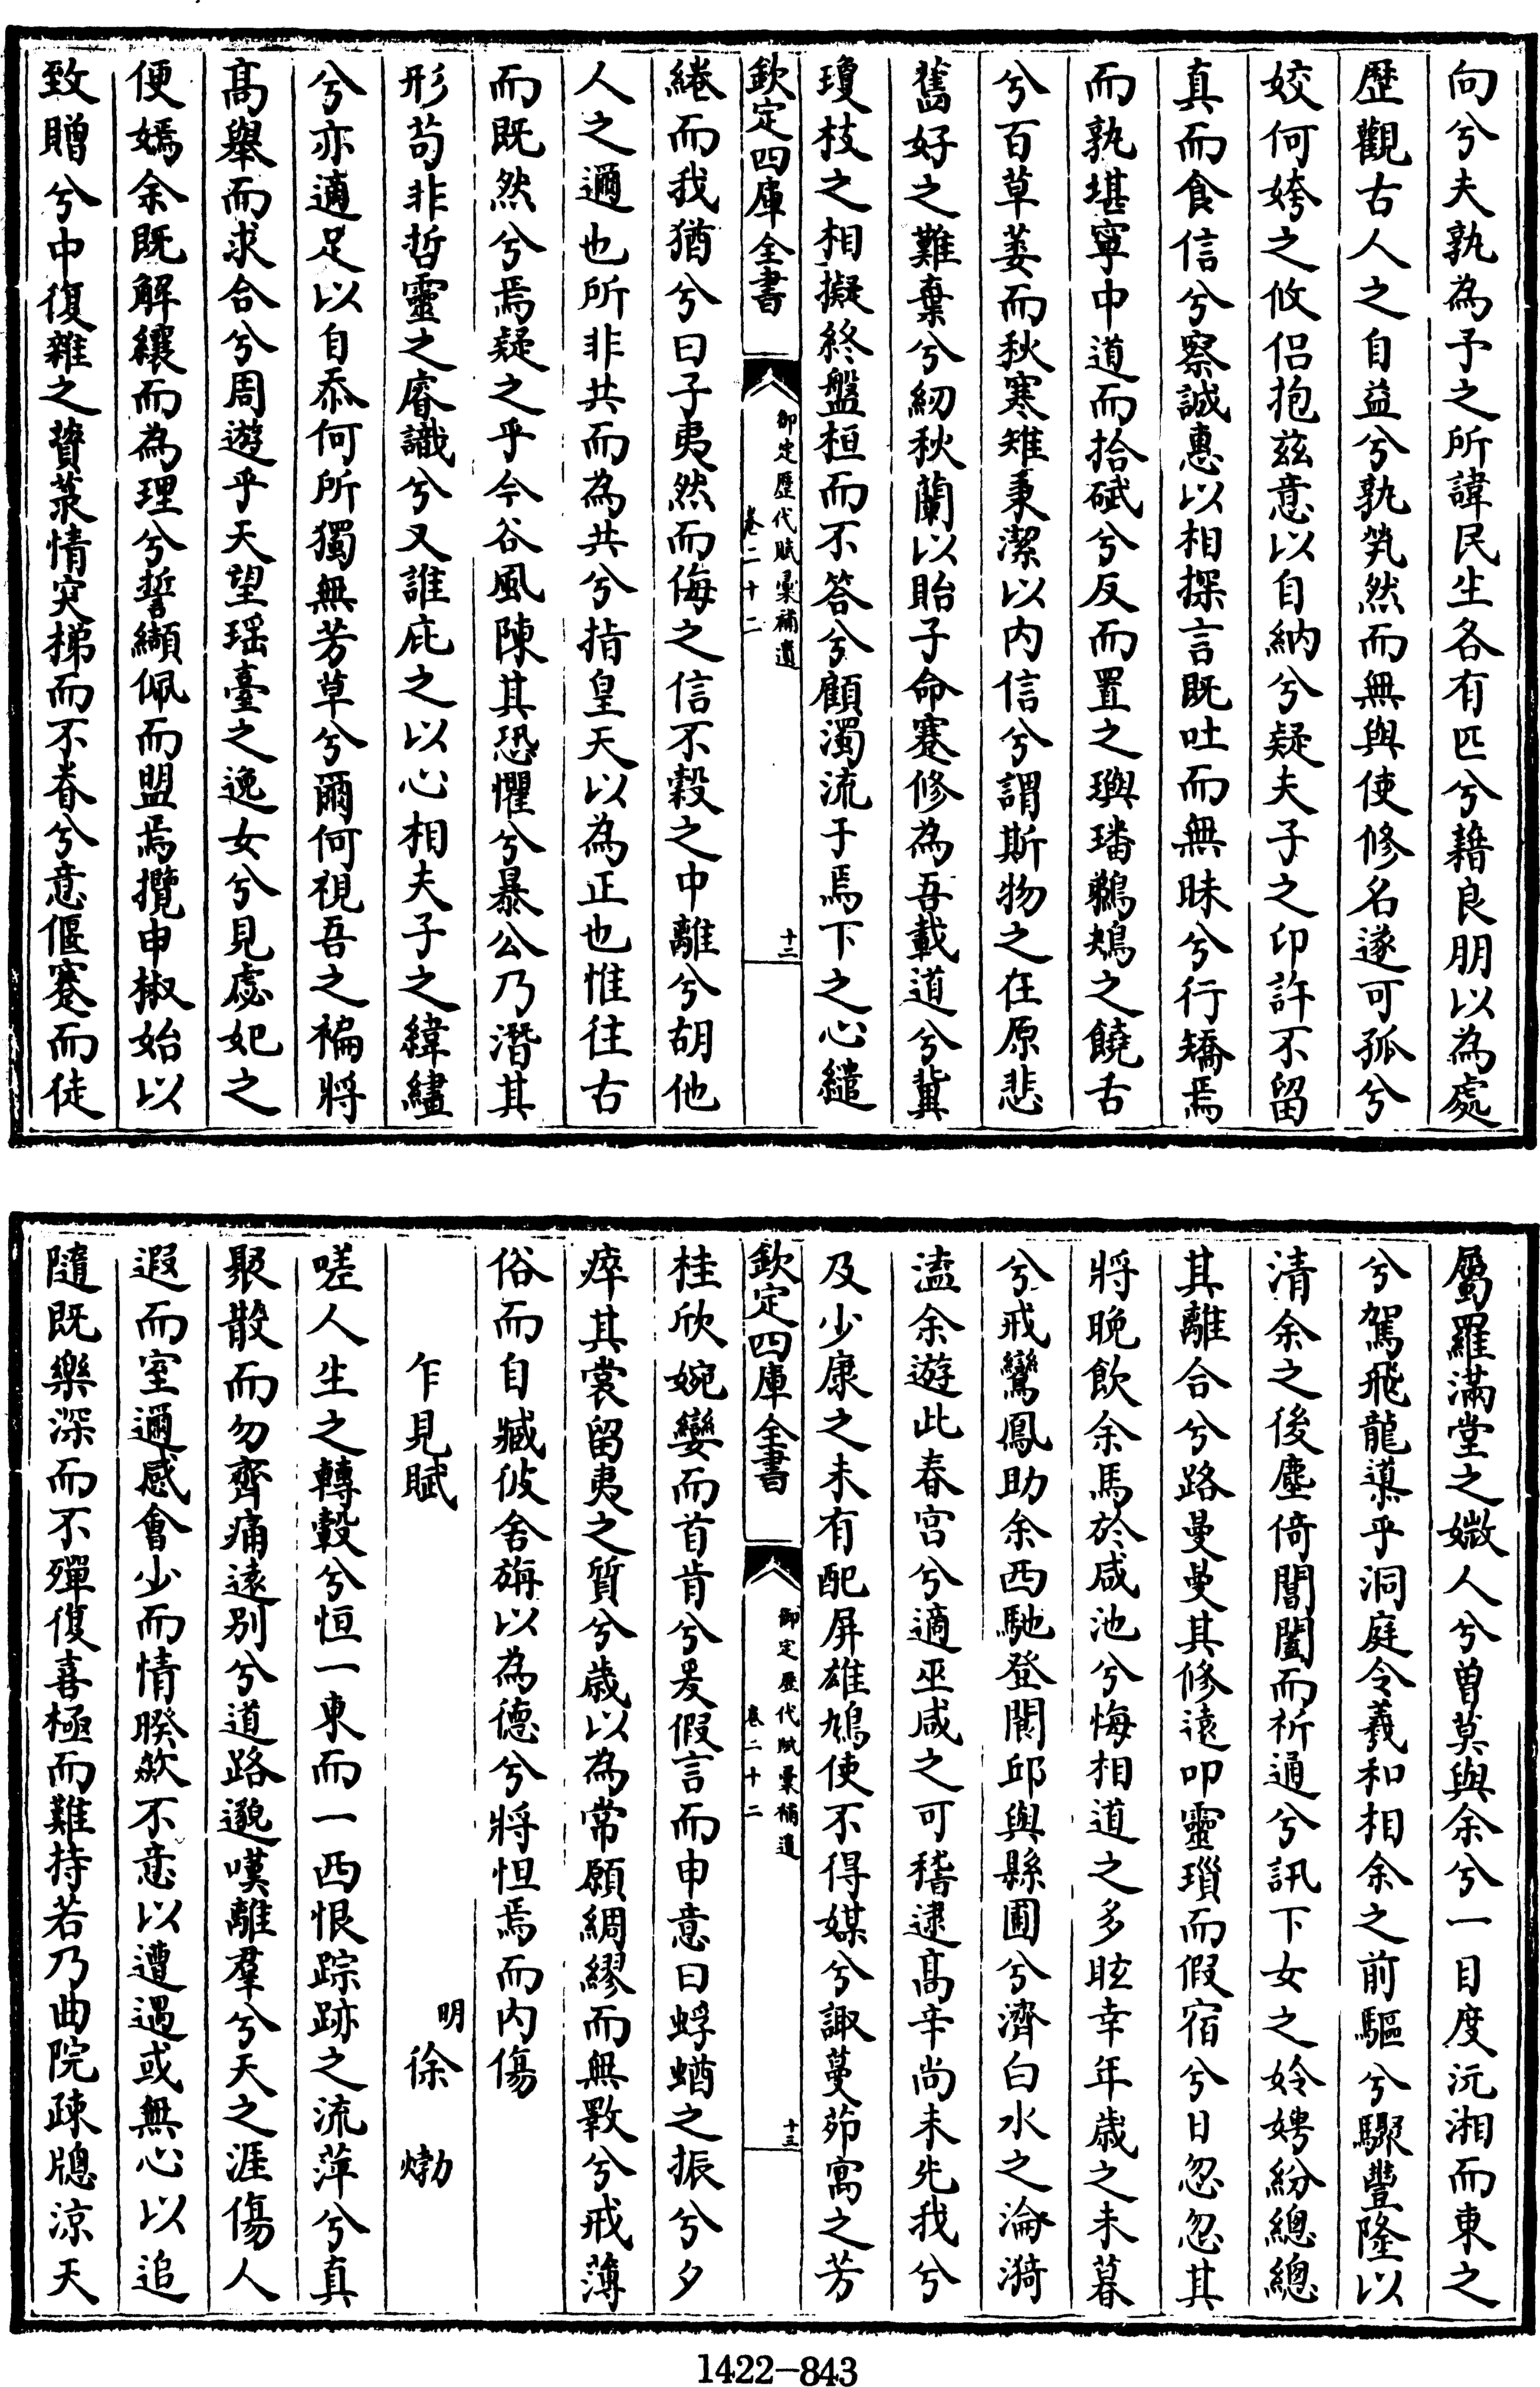 向兮夫孰為予之所諱民生各有匹兮藉良朋以為處
歴觀古人之自益兮孰煢然而無與使修名遂可孤兮
姣何姱之攸侣抱兹意以自納兮疑夫子之卬許不留
真而食信兮察誠惠以相探言既吐而無昧兮行矯焉
而孰堪寕中道而拾碔兮反而置之璵璠鵜鴂之饒舌
兮百草萎而秋寒雉秉潔以内信兮謂斯物之在原悲
舊好之難棄兮紉秋蘭以貽子命蹇修為吾載道兮冀
瓊枝之相擬終盤桓而不答兮顧濁流于焉下之心繾
欽定四庫全書
御定歴代賦彚補遺
卷二十二
十二
綣而我猶兮曰子夷然而侮之信不穀之中離兮胡他
人之邇也所非共而為共兮指皇天以為正也惟往古
而既然兮焉疑之乎今谷風陳其恐懼兮暴公乃潛其
形苟非哲靈之睿識兮又誰庇之以心相夫子之緯繣
兮亦適足以自忝何所獨無芳草兮爾何視吾之褊將
髙舉而求合兮周遊乎天望瑶臺之逸女兮見虙妃之
便嫣余既解纕而為理兮誓纈佩而盟焉攬申椒始以
致贈兮中復雜之蕡菉情突梯而不眷兮意偃蹇而徒
屬羅滿堂之媺人兮曽莫與余兮一目度沅湘而東之
兮駕飛龍邅乎洞庭令羲和相余之前驅兮驟豐隆以
清余之後塵倚閶闔而祈通兮訊下女之姈娉紛總總
其離合兮路曼曼其修遠叩靈瑣而假宿兮日忽忽其
將晚飲余馬於咸池兮悔相道之多眩幸年歳之未暮
兮戒鸞鳳助余西馳登閬邱與縣圃兮濟白水之淪漪
溘余遊此春宫兮適巫咸之可稽逮髙辛尚未先我兮
及少康之未有配屏雄鳩使不得媒兮諏蔓茆寓之芳
欽定四庫全書
御定歴代賦彚補遺
卷二十二
十三
桂欣婉孌而首肯兮爰假言而申意曰蜉蝣之振兮夕
瘁其裳留夷之質兮歳以為常願綢繆而無斁兮戒薄
俗而自臧佊舍旃以為德兮將怛焉而内傷
乍見賦
明 徐𤊹
嗟人生之轉轂兮恒一東而一西恨踪跡之流萍兮真
聚散而勿齊痛逺别兮道路邈嘆離羣兮天之涯傷人
遐而室邇感會少而情暌欻不意以遭遇或無心以追
隨既樂深而不殫復喜極而難持若乃曲院疎牕涼天
1422—843